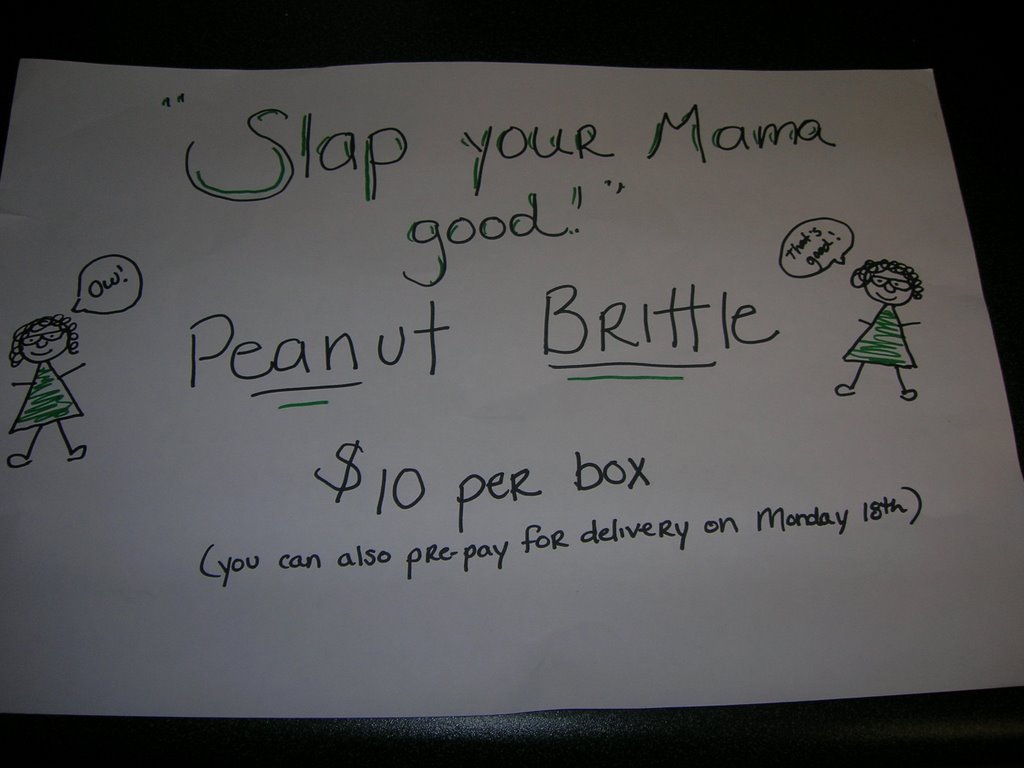 "Slap your Mama
good!"
Ow!
That's
good!
Peanut Brittle
$10 per box
(you can also pre-pay for delivery on Monday 18th)